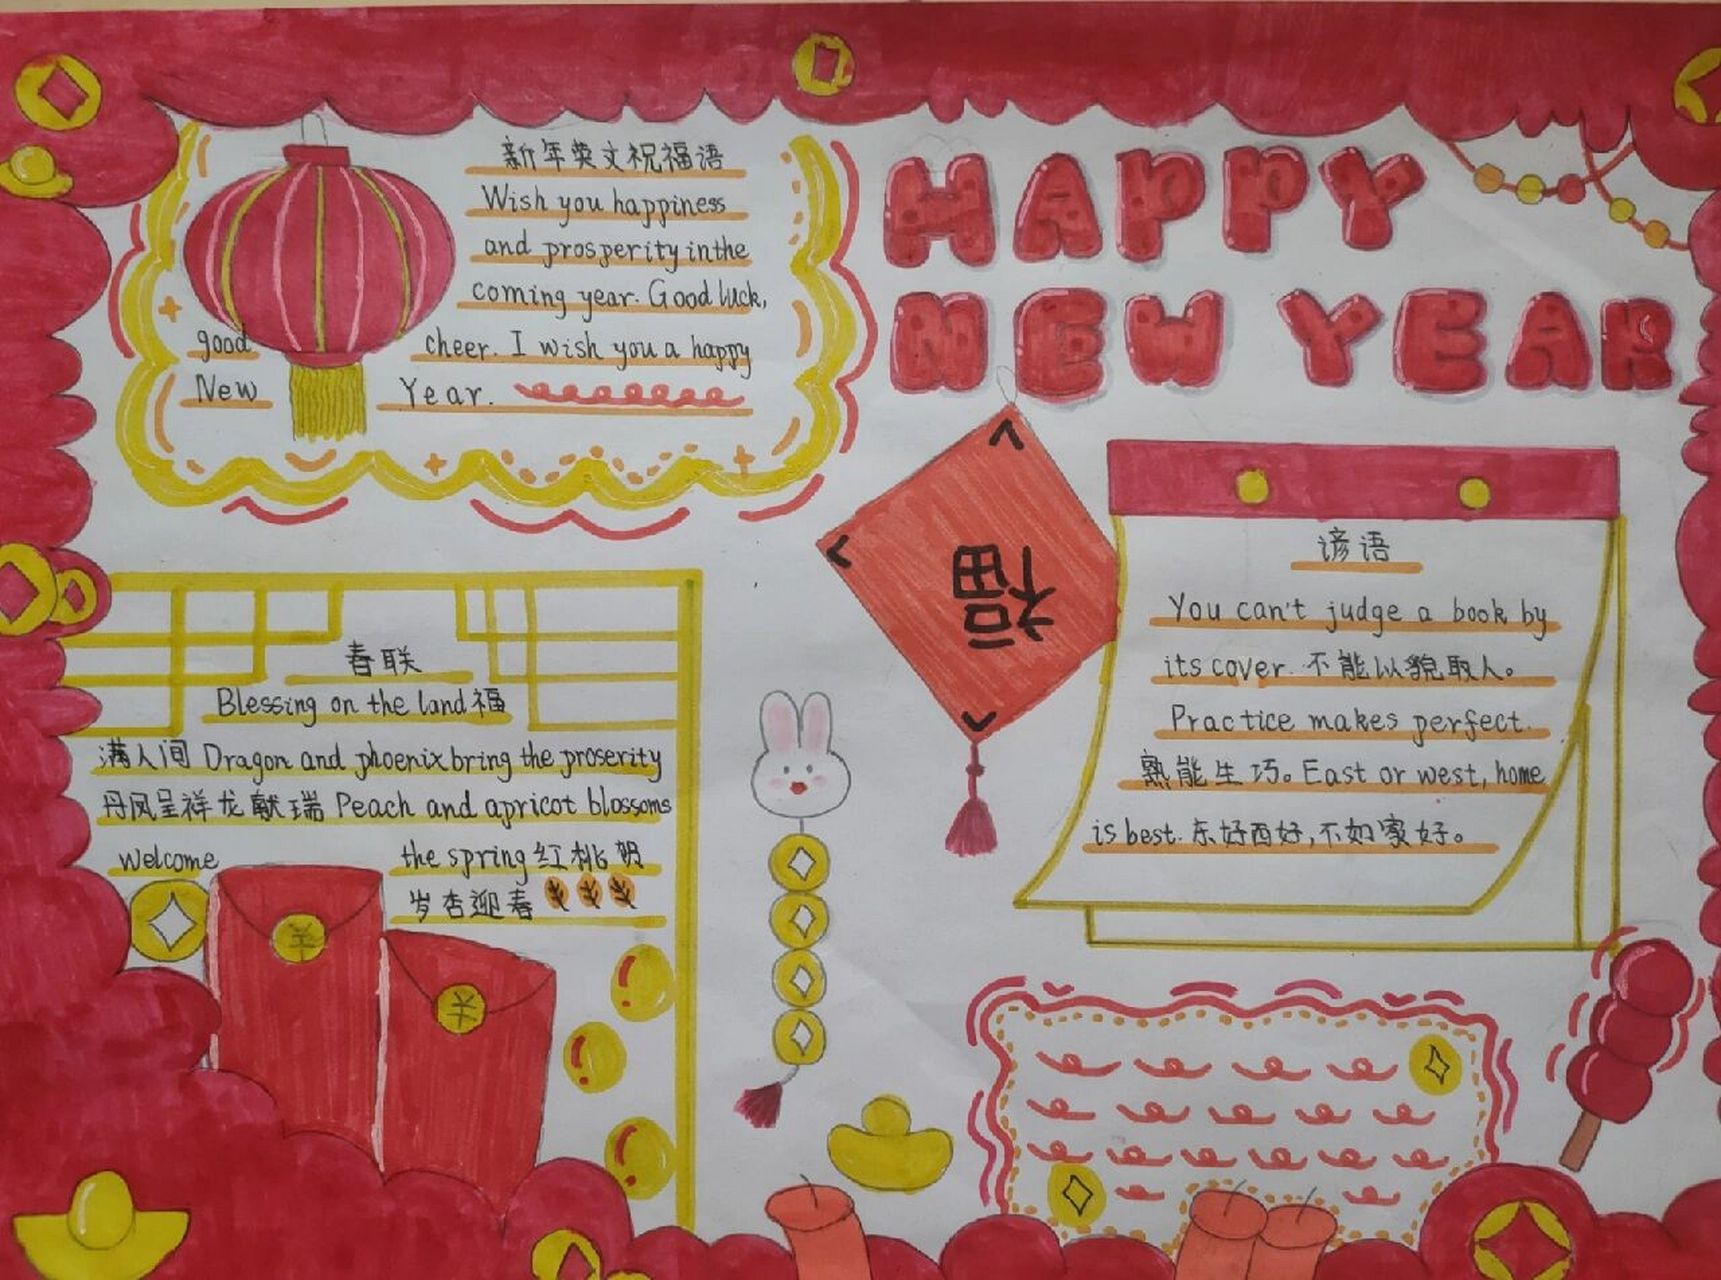 新年英文祝福语
Wish you happiness
and prosperity in the
coming year. Good luck,
good cheer. I wish you a happy
New Year.
HAPPY
NEW YEAR
福
谚语
You can't judge a book by
its cover. 不能以貌取人。
Practice makes perfect.
熟能生巧。East or west, home
is best. 东好西好,不如家好。
春联
Blessing on the land 福
满人间 Dragon and phoenix bring the proserity
丹凤呈祥龙献瑞 Peach and apricot blossoms
welcome the spring 红桃贺
岁杏迎春